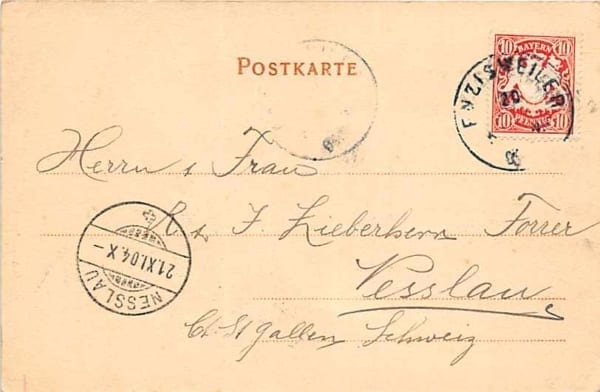 POSTKARTE
10 BAYERN 10
10 PFENNIG 10
ENZISWEILER
20
Herrn & Frau
R. & J. Lieberherr Forrer
Nesslau
Ct. St gallen Schweiz
NESSLAU
21.XI.04.X–